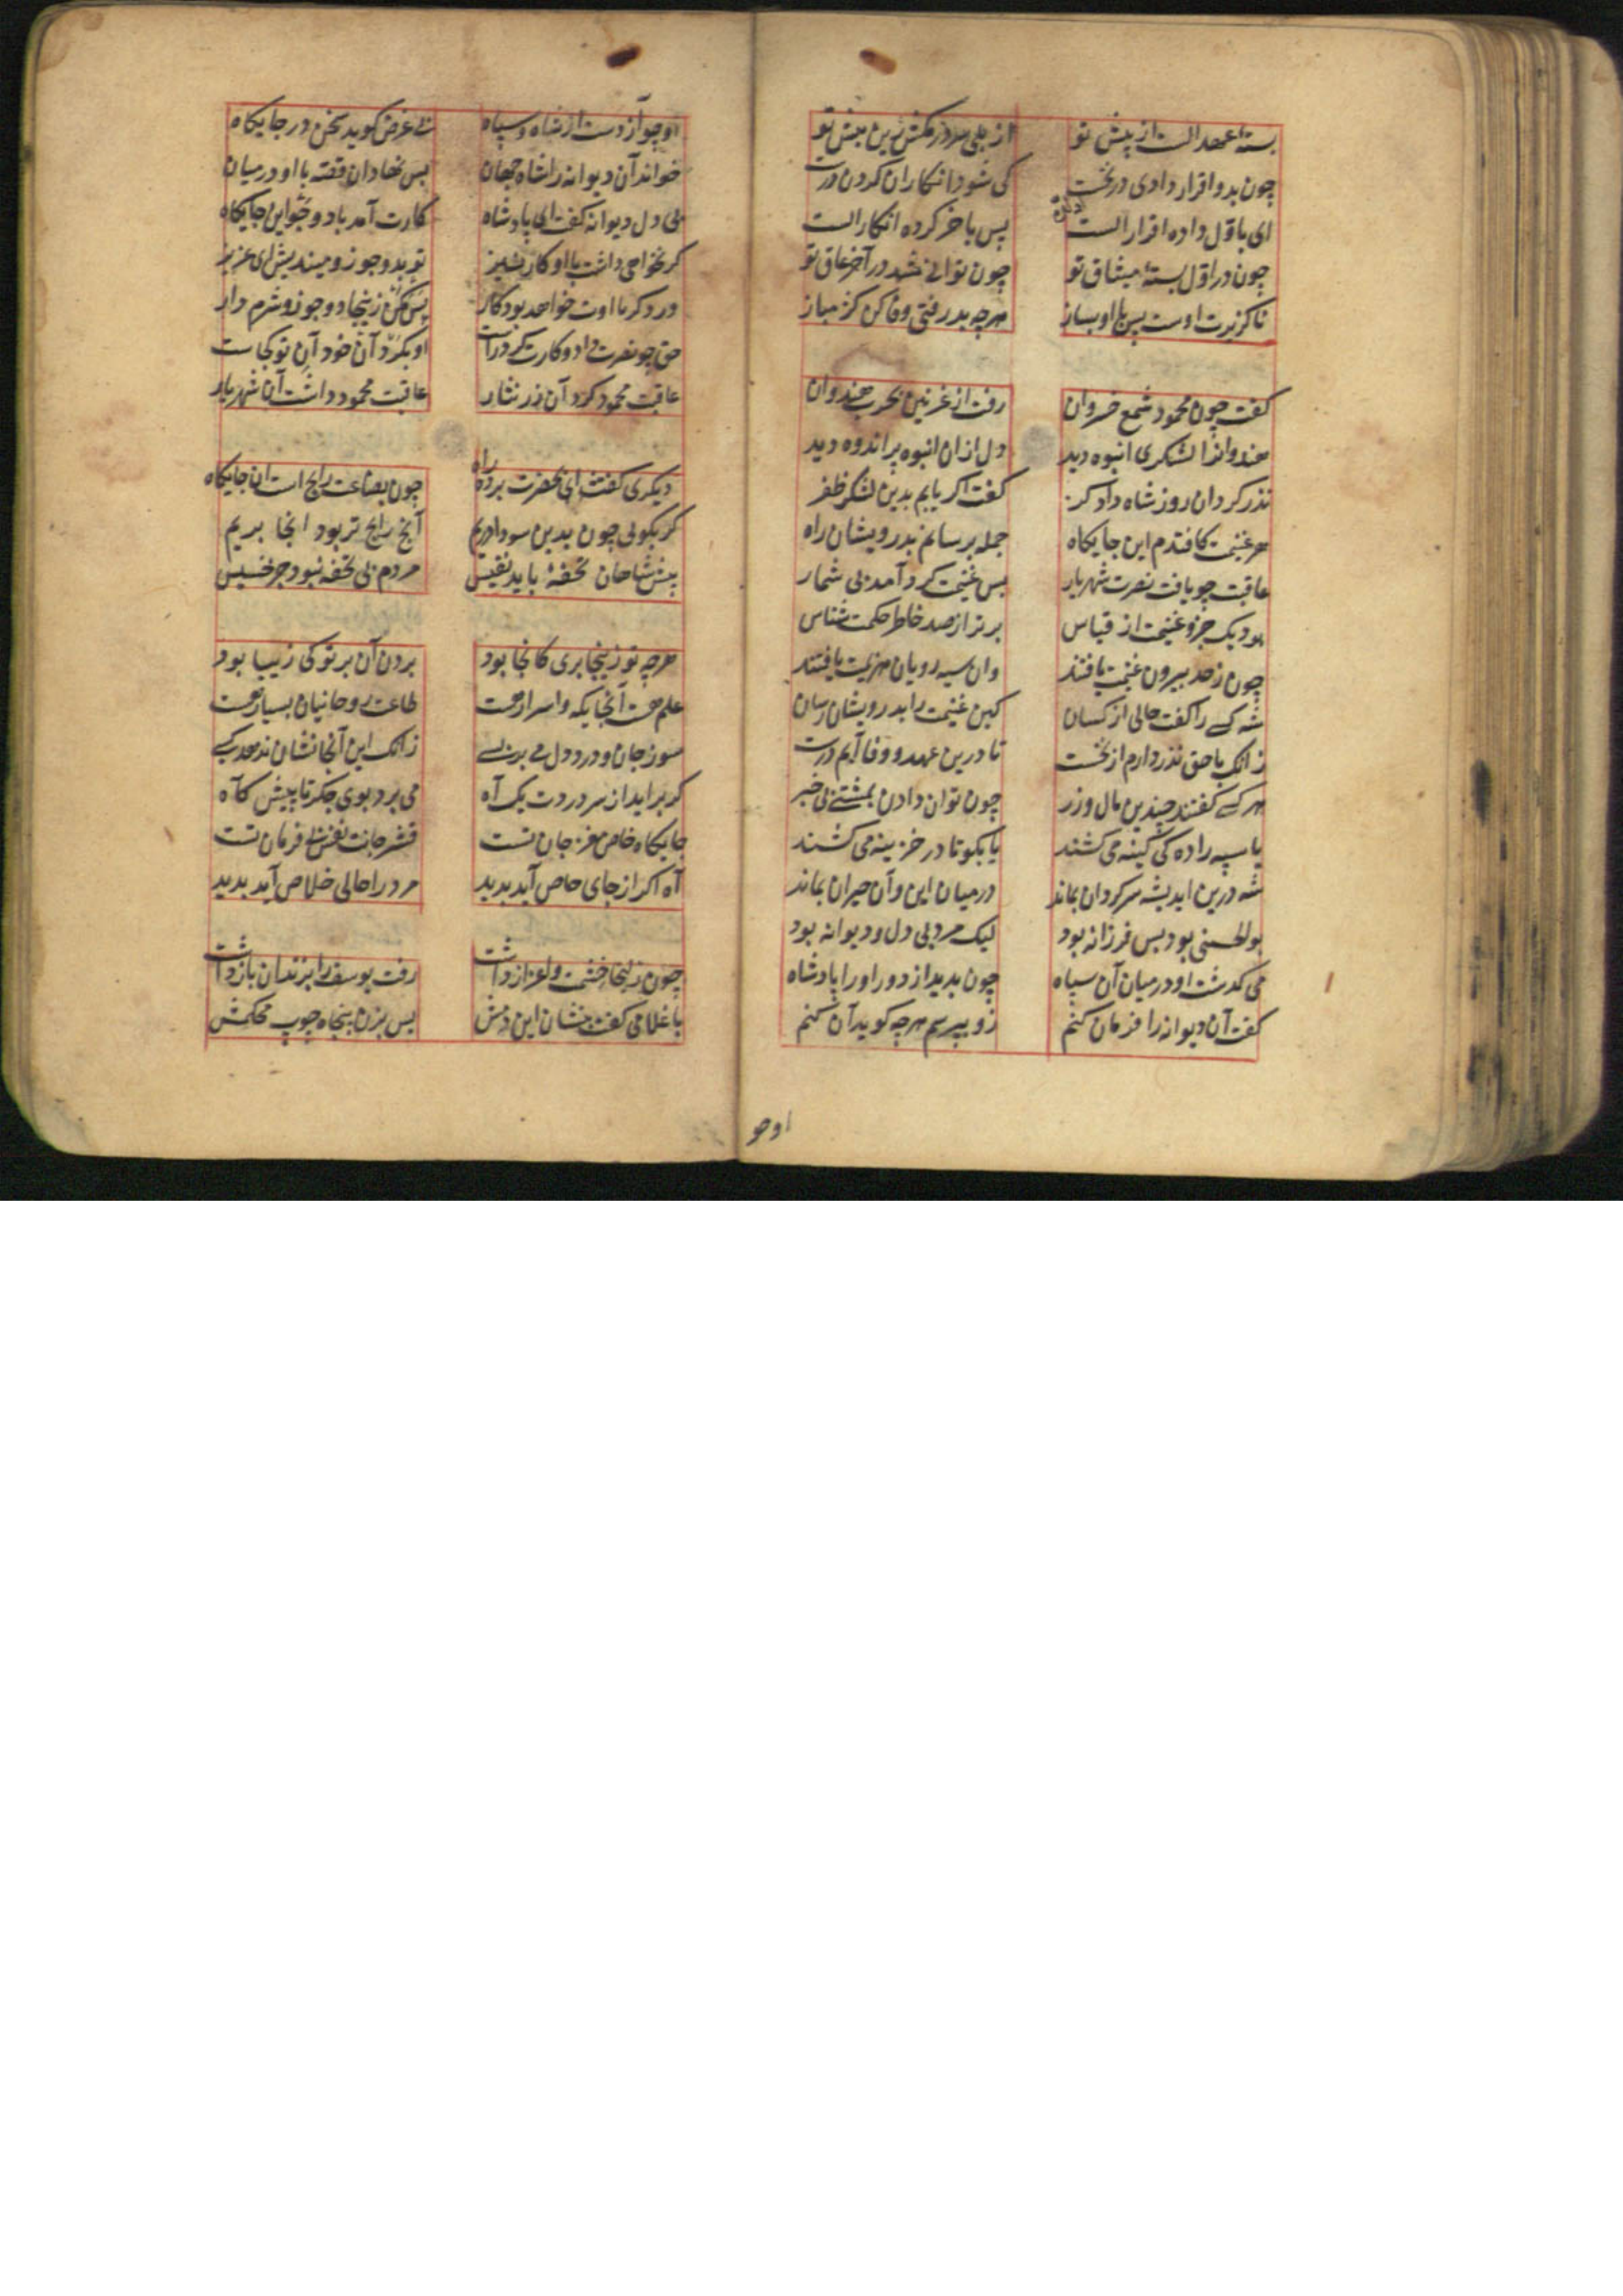 بسته عهد الست از پیش تو از بلی سر در مکش زین بیش تو
چون بدو اقرار دادی در نخست کی شود انکار آن کردن درست
ای باول داده اقرار الست پس باخر کرده انکار الست
چون در اول بستهٔ میثاق تو چون توانی شد در آخر عاق تو
ناگزیرت اوست پس با او بساز هرچه پذرفتی وفا کن کژ مباز
گفت چون محمود شمع خسروان رفت از غزنین بحرب هندوان
هندوانرا لشکری انبوه دید دل ازان انبوه پر اندوه دید
نذر کرد آن روز شاه دادگر گفت اگر یابم بدین لشکر ظفر
هر غنیمت کافتدم این جایگاه جمله برسانم بدرویشان راه
عاقبت چو یافت نصرت شهریار بس غنیمت گرد آمد بی شمار
بود یک جزو غنیمت از قیاس برتر از صد خاطر حکمت شناس
چون ز حد بیرون غنیمت یافتند وان سیه رویان هزیمت یافتند
شه کسی را گفت حالی از کسان کین غنیمت را بدرویشان رسان
زانک با حق نذر دارم از نخست تا درین عهد و وفا آیم درست
هر کسی گفتند چندین مال و زر چون توان دادن بمشتی بی خبر
یا سپه را ده که کینه می کشند یا بگو تا در خزینه می کشند
شه درین اندیشه سرگردان بماند در میان این و آن حیران بماند
بوالحسینی بود بس فرزانه بود لیک مردی بی دل و دیوانه بود
می گذشت او در میان آن سپاه چون بدید از دور او را پادشاه
گفت آن دیوانه را فرمان کنم زو بپرسم هرچه گوید آن کنم
او چو
او چو آزادست از شاه و سپاه بی غرض گوید سخن در جایگاه
خواند آن دیوانه را شاه جهان پس نهاد آن قصه با او در میان
بی دل دیوانه گفت ای پادشاه کارت آمد با دو جو این جایگاه
گر نخواهی داشت با او کار نیز تو بدو جو زو میندیش ای عزیز
ور دگر با اوت خواهد بود کار پس مکن زینجا دو جو زو شرم دار
حق چو نصرت داد و کارت کرد راست او بکرد آن خود آن تو کجاست
عاقبت محمود کرد آن زر نثار عاقبت محمود داشت آن شهریار
دیگری گفتش ای بحضرت برده راه چون بضاعت رایج است ان جایگاه
گر بگویی چون بدین سودا دریم آنچ رایج تر بود انجا بریم
پیش شاهان تحفهٔ باید نفیس مردم بی تحفه نبود جز خسیس
هرچه تو زینجا بری کانجا بود بردن آن بر تو کی زیبا بود
علم هست آنجایگه و اسرار هست طاعت روحانیان بسیار هست
سوز جان و درد دل می بر بسی زانک این آنجا نشان ندهد کسی
گر برآید از سر دردت یک آه می برد بوی جگر تا پیش گاه
جایگاه خاص مغز جان تست قشر جانت نفس نافرمان تست
آه اگر از جای خاص آید پدید مرد را حالی خلاص آید پدید
چون زلیخا حشمت و اعزاز داشت رفت یوسف را بزندان بازداشت
با غلامی گفت بنشان این دمش پس بزن پنجاه چوب محکمش